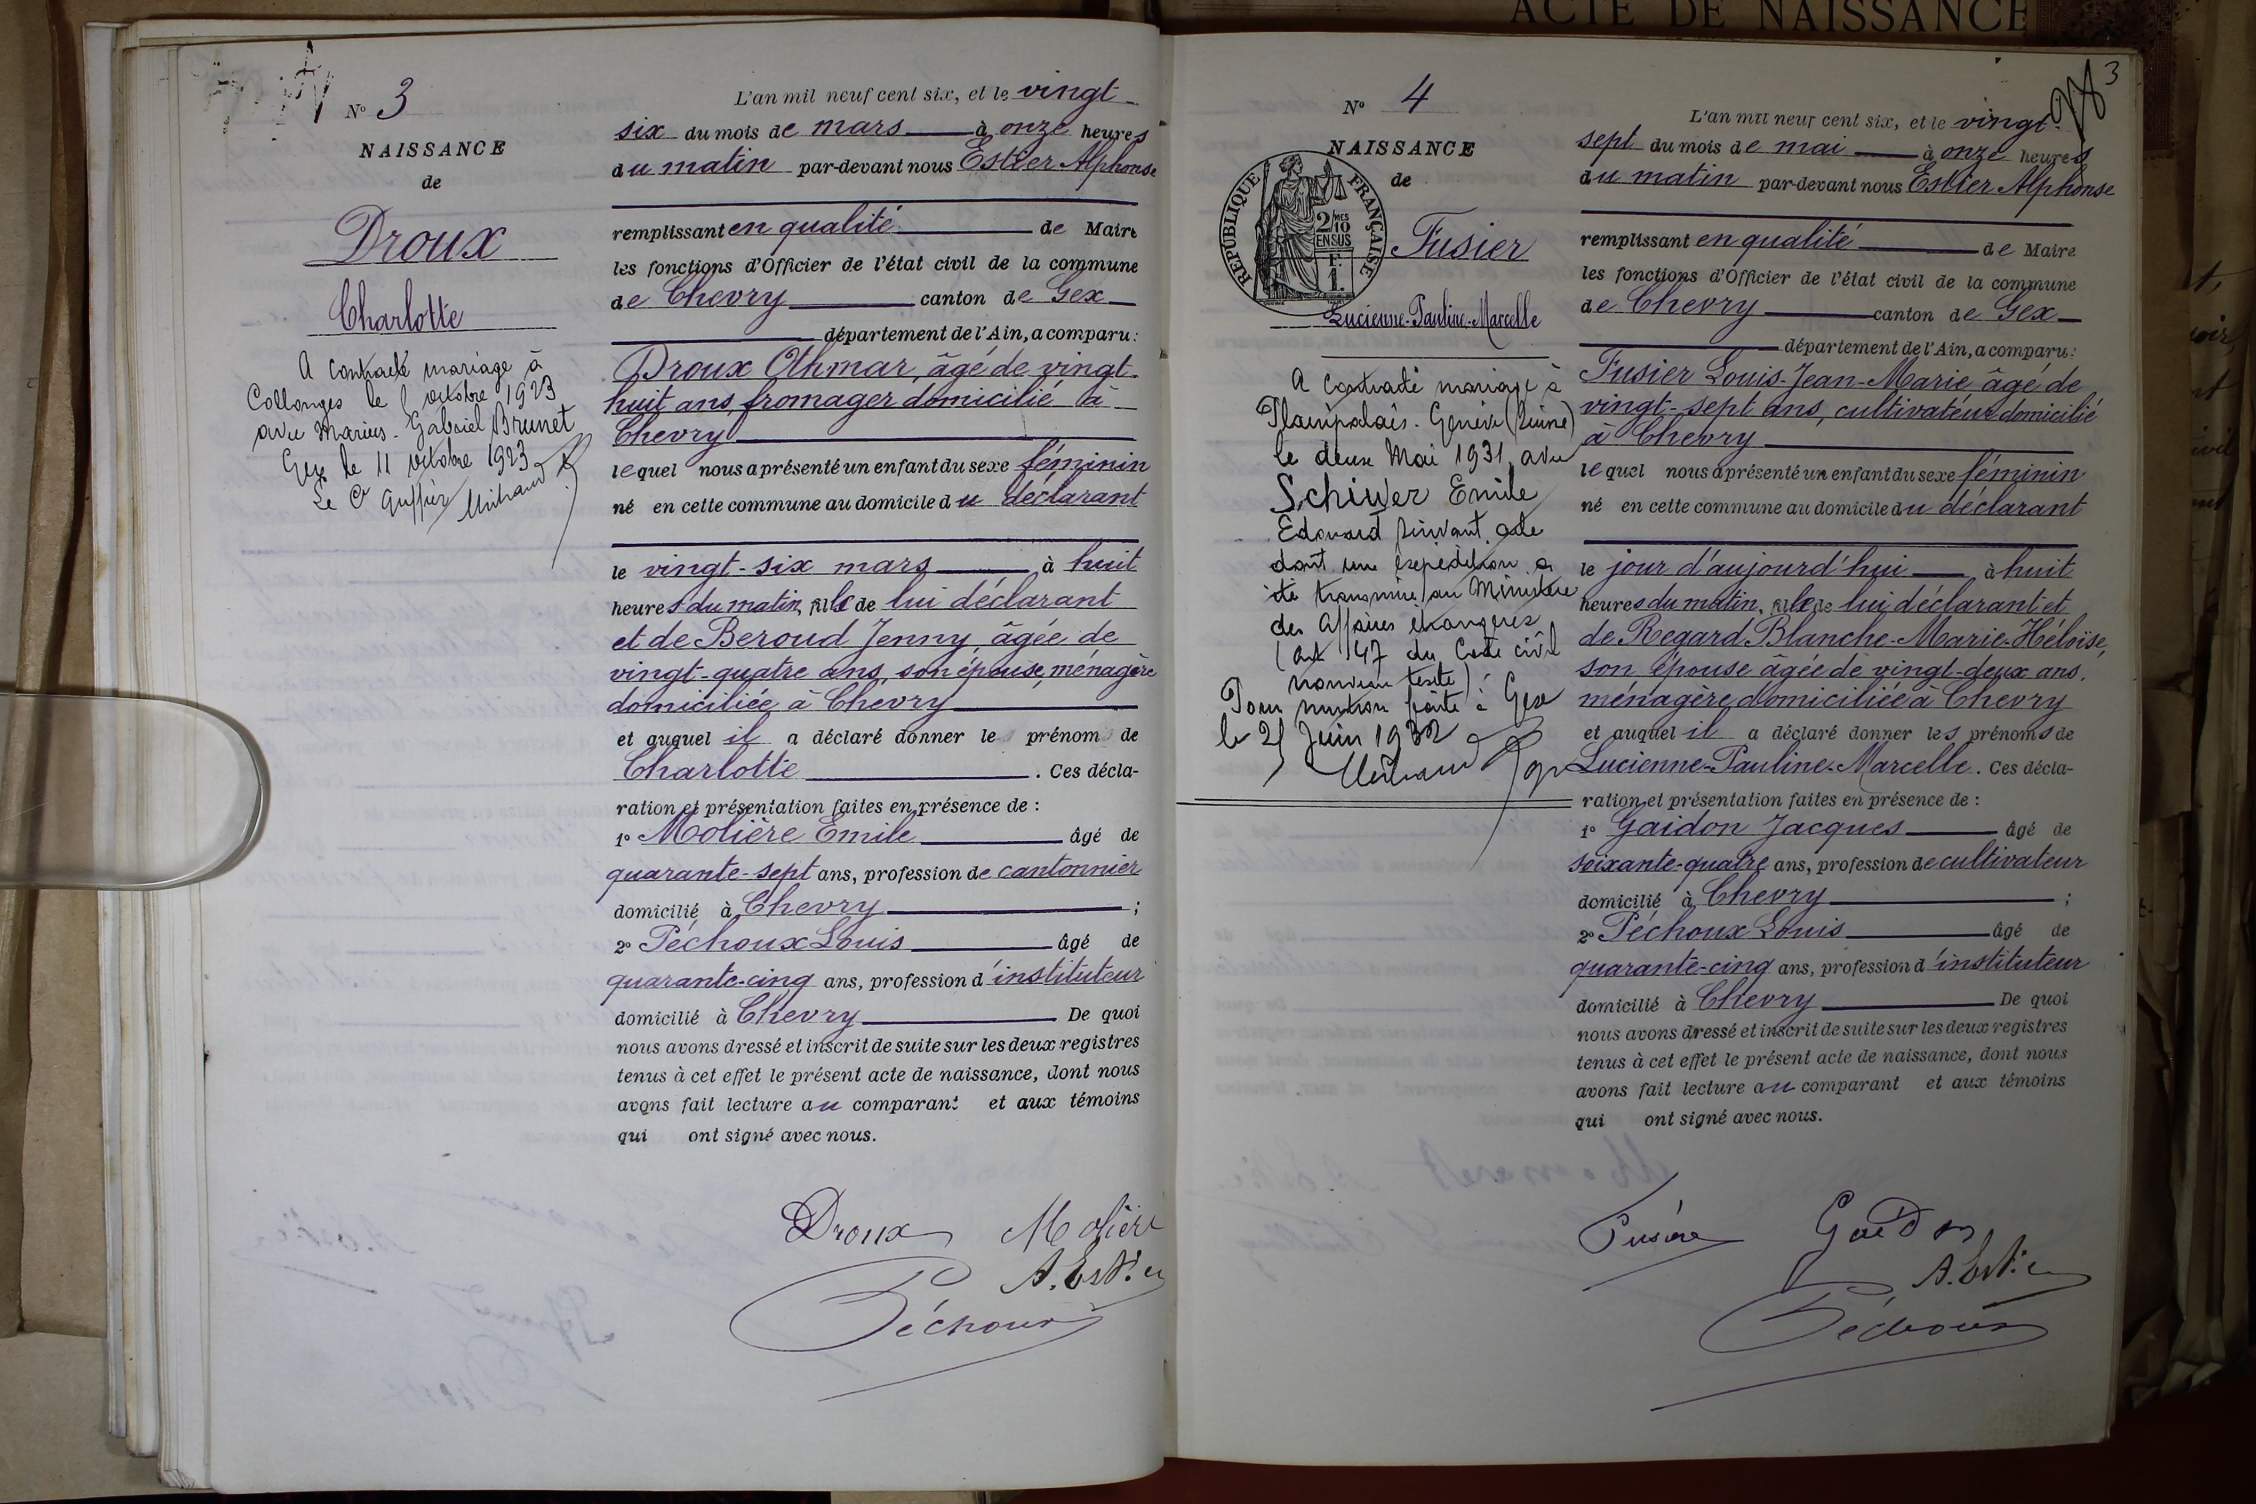 ACTE DE NAISSANCE
N° 3
NAISSANCE
de
Droux
Charlotte
A contracté mariage à
Collonges le octobre 1923
avec Marius-Gabriel Brunet
Gex le 11 octobre 1923
Le Greffier
L'an mil neuf cent six, et le vingt-
six du mois de mars à onze heures
du matin par-devant nous Estier Alphonse
remplissant en qualité de Maire
les fonctions d'Officier de l'état civil de la commune
de Chevry canton de Gex
département de l'Ain, a comparu:
Droux Othmar, âgé de vingt-
huit ans, fromager domicilié à
Chevry
lequel nous a présenté un enfant du sexe féminin
né en cette commune au domicile du déclarant
le vingt-six mars à huit
heures du matin, fille de lui déclarant
et de Beroud Jenny, âgée de
vingt-quatre ans, son épouse, ménagère
domiciliée à Chevry
et auquel il a déclaré donner le prénom de
Charlotte. Ces décla-
ration et présentation faites en présence de :
1° Molière Emile âgé de
quarante-sept ans, profession de cantonnier
domicilié à Chevry ;
2° Péchoux Louis âgé de
quarante-cinq ans, profession d'instituteur
domicilié à Chevry De quoi
nous avons dressé et inscrit de suite sur les deux registres
tenus à cet effet le présent acte de naissance, dont nous
avons fait lecture au comparant et aux témoins
qui ont signé avec nous.
Droux Molière
A. Estier
Péchoux
3
N° 4
NAISSANCE
de
RÉPUBLIQUE FRANÇAISE
2/10MES
EN SUS
Fusier
Lucienne-Pauline-Marcelle
A contracté mariage à
Plainpalais-Genève (Suisse)
le deux Mai 1931, avec
Schiwer Emile
Edouard suivant acte
dont une expédition a
été transmise au Ministère
des Affaires étrangères
(art 47 du Code civil
nouveau texte)
Pour mention faite à Gex
le 21 Juin 1932
L'an mil neuf cent six, et le vingt-
sept du mois de mai à onze heures
du matin par-devant nous Estier Alphonse
remplissant en qualité de Maire
les fonctions d'Officier de l'état civil de la commune
de Chevry canton de Gex
département de l'Ain, a comparu:
Fusier Louis-Jean-Marie âgé de
vingt-sept ans, cultivateur domicilié
à Chevry
lequel nous a présenté un enfant du sexe féminin
né en cette commune au domicile du déclarant
le jour d'aujourd'hui à huit
heures du matin, fille de lui déclarant et
de Regard Blanche-Marie-Héloïse,
son épouse âgée de vingt-deux ans,
ménagère domiciliée à Chevry
et auquel il a déclaré donner les prénoms de
Lucienne-Pauline-Marcelle. Ces décla-
ration et présentation faites en présence de :
1° Gaidon Jacques âgé de
soixante-quatre ans, profession de cultivateur
domicilié à Chevry ;
2° Péchoux Louis âgé de
quarante-cinq ans, profession d'instituteur
domicilié à Chevry De quoi
nous avons dressé et inscrit de suite sur les deux registres
tenus à cet effet le présent acte de naissance, dont nous
avons fait lecture au comparant et aux témoins
qui ont signé avec nous.
Fusier Gaidon
A. Estier
Péchoux